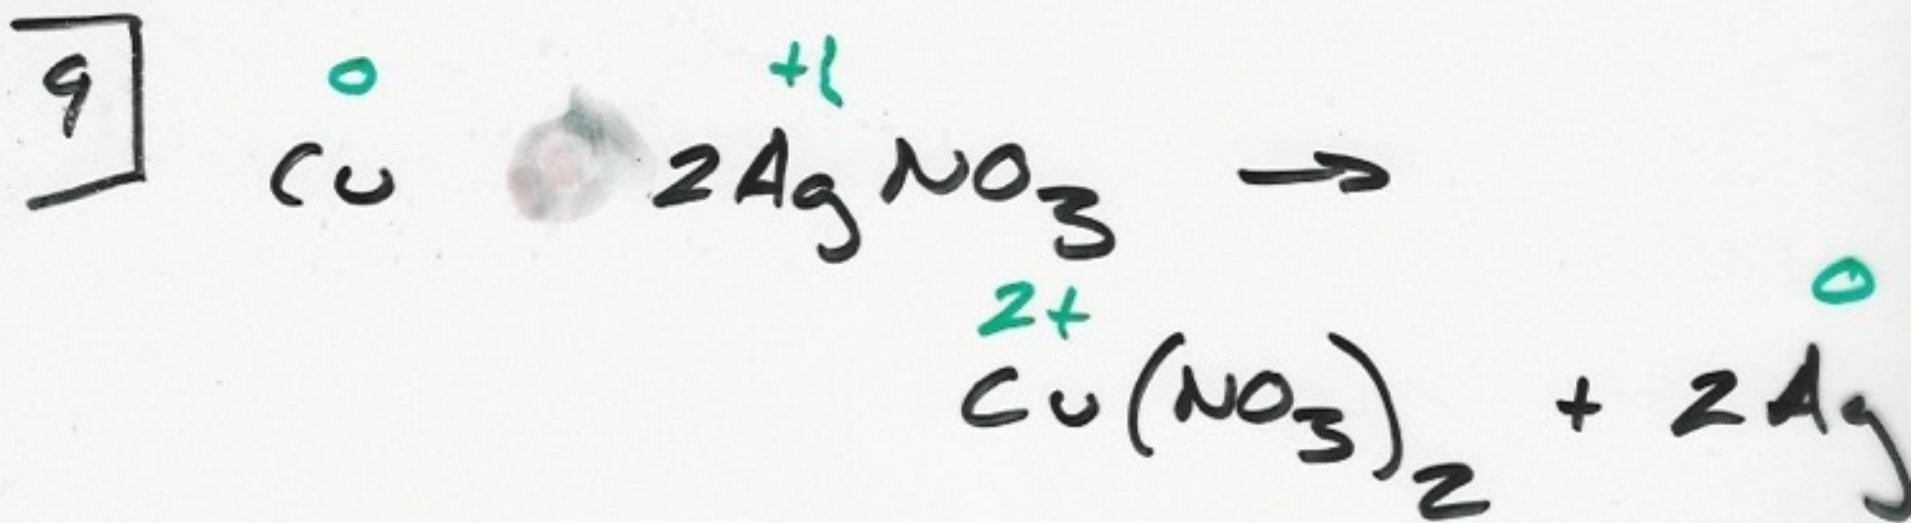 9
0 +1
Cu 2AgNO₃ →
2+ 0
Cu(NO₃)₂ + 2Ag